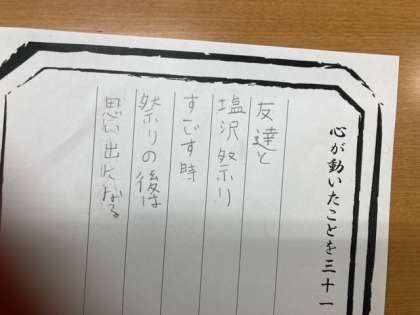 心が動いたことを三十一
友達と
塩沢祭り
すごす時
祭りの後は
思い出になる